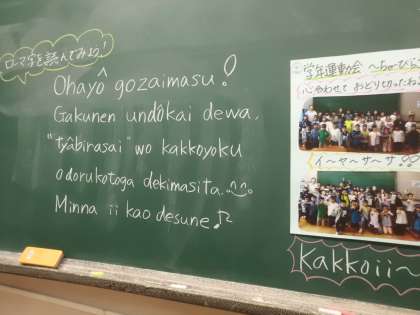 ローマ字を読んでみよう!
Ohayô gozaimasu!
Gakunen undôkai dewa,
"tyâbirasai" wo kakkoyoku
odorukotoga dekimasita.
Minna ii kao desune♪
学年運動会 ～ちゃーびら
心 あわせて おどりきったね
イ～ヤ～サ～サ
Kakkoii～